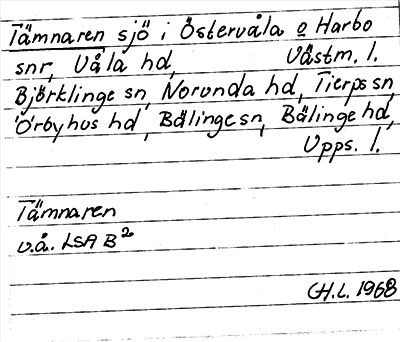 Tämnaren sjö i Östervåla o Harbo
snr, Våla hd, Västm. l.
Björklinge sn, Norunda hd, Tierps sn,
Örbyhus hd, Bälinge sn, Bälinge hd,
Upps. l.
Tämnaren
v.å. LSA B²
CH.L. 1968